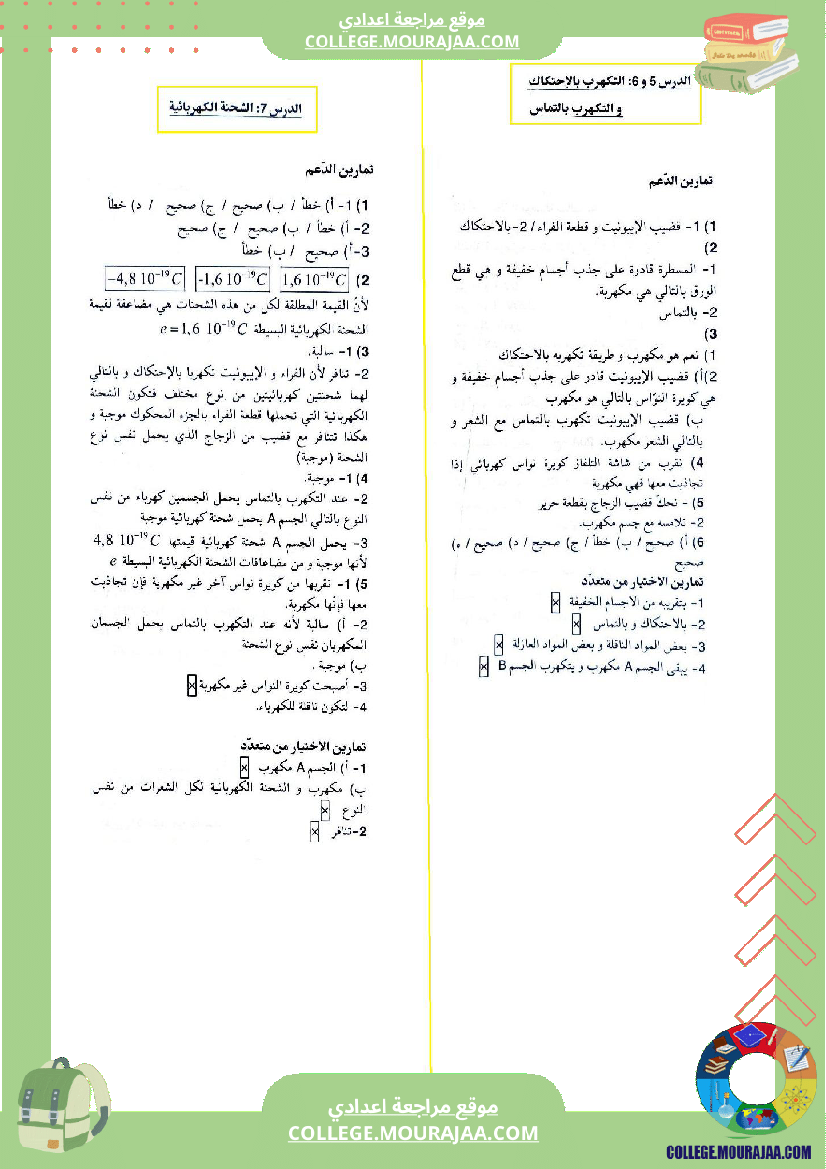 موقع مراجعة اعدادي
COLLEGE.MOURAJAA.COM
الدرس 5 و 6: التكهرب بالإحتكاك
و التكهرب بالتماس
تمارين الدّعم
1) 1- قضيب الإيبونيت و قطعة الفراء / 2-بالاحتكاك
2)
1- المسطرة قادرة على جذب أجسام خفيفة و هي قطع
الورق بالتالي هي مكهربة.
2- بالتماس
3)
1) نعم هو مكهرب و طريقة تكهربه بالاحتكاك
2)أ) قضيب الإيبونيت قادر على جذب أجسام خفيفة و
هي كويرة النوّاس بالتالي هو مكهرب
ب) قضيب الإيبونيت تكهرب بالتماس مع الشعر و
بالتالي الشعر مكهرب.
4) نقرب من شاشة التلفاز كويرة نواس كهربائي إذا
تجاذبت معها فهي مكهربة
5) - نحكّ قضيب الزجاج بقطعة حرير
2- تلامسه مع جسم مكهرب.
6) أ) صحيح / ب) خطأ / ج) صحيح / د) صحيح / ه)
صحيح
تمارين الاختيار من متعدّد
1- بتقريبه من الأجسام الخفيفة ×
2- بالاحتكاك و بالتماس ×
3- بعض المواد الناقلة و بعض المواد العازلة ×
4- يبقى الجسم A مكهرب و يتكهرب الجسم B ×
الدرس 7: الشحنة الكهربائية
تمارين الدّعم
1) 1- أ) خطأ / ب) صحيح / ج) صحيح / د) خطأ
2- أ) خطأ / ب) صحيح / ج) صحيح
3-أ) صحيح / ب) خطأ
2) 1,6 10⁻¹⁹C -1,6 10⁻¹⁹C −4,8 10⁻¹⁹C
لأنّ القيمة المطلقة لكل من هذه الشحنات هي مضاعفة لقيمة
الشحنة الكهربائية البسيطة e=1,6 10⁻¹⁹C
3) 1- سالبة.
2- تنافر لأن الفراء و الإيبونيت تكهربا بالإحتكاك و بالتالي
لهما شحنتين كهربائيتين من نوع مختلف فتكون الشحنة
الكهربائية التي تحملها قطعة الفراء بالجزء المحكوك موجبة و
هكذا تتنافر مع قضيب من الزجاج الذي يحمل نفس نوع
الشحنة (موجبة)
4) 1- موجبة.
2- عند التكهرب بالتماس يحمل الجسمين كهرباء من نفس
النوع بالتالي الجسم A يحمل شحنة كهربائية موجبة
3- يحمل الجسم A شحنة كهربائية قيمتها 4,8 10⁻¹⁹C
لأنها موجبة و من مضاعاقات الشحنة الكهربائية البسيطة e
5) 1- نقربها من كويرة نواس آخر غير مكهربة فإن تجاذبت
معها فإنّها مكهربة.
2- أ) سالبة لأنه عند التكهرب بالتماس يحمل الجسمان
المكهربان نفس نوع الشحنة
ب) موجبة .
3- أصبحت كويرة النواس غير مكهربة ×
4- لتكون ناقلة للكهرباء.
تمارين الاختيار من متعدّد
1- أ) الجسم A مكهرب ×
ب) مكهرب و الشحنة الكهربائية لكل الشعرات من نفس
النوع ×
2-تنافر ×
موقع مراجعة اعدادي
COLLEGE.MOURAJAA.COM
COLLEGE.MOURAJAA.COM